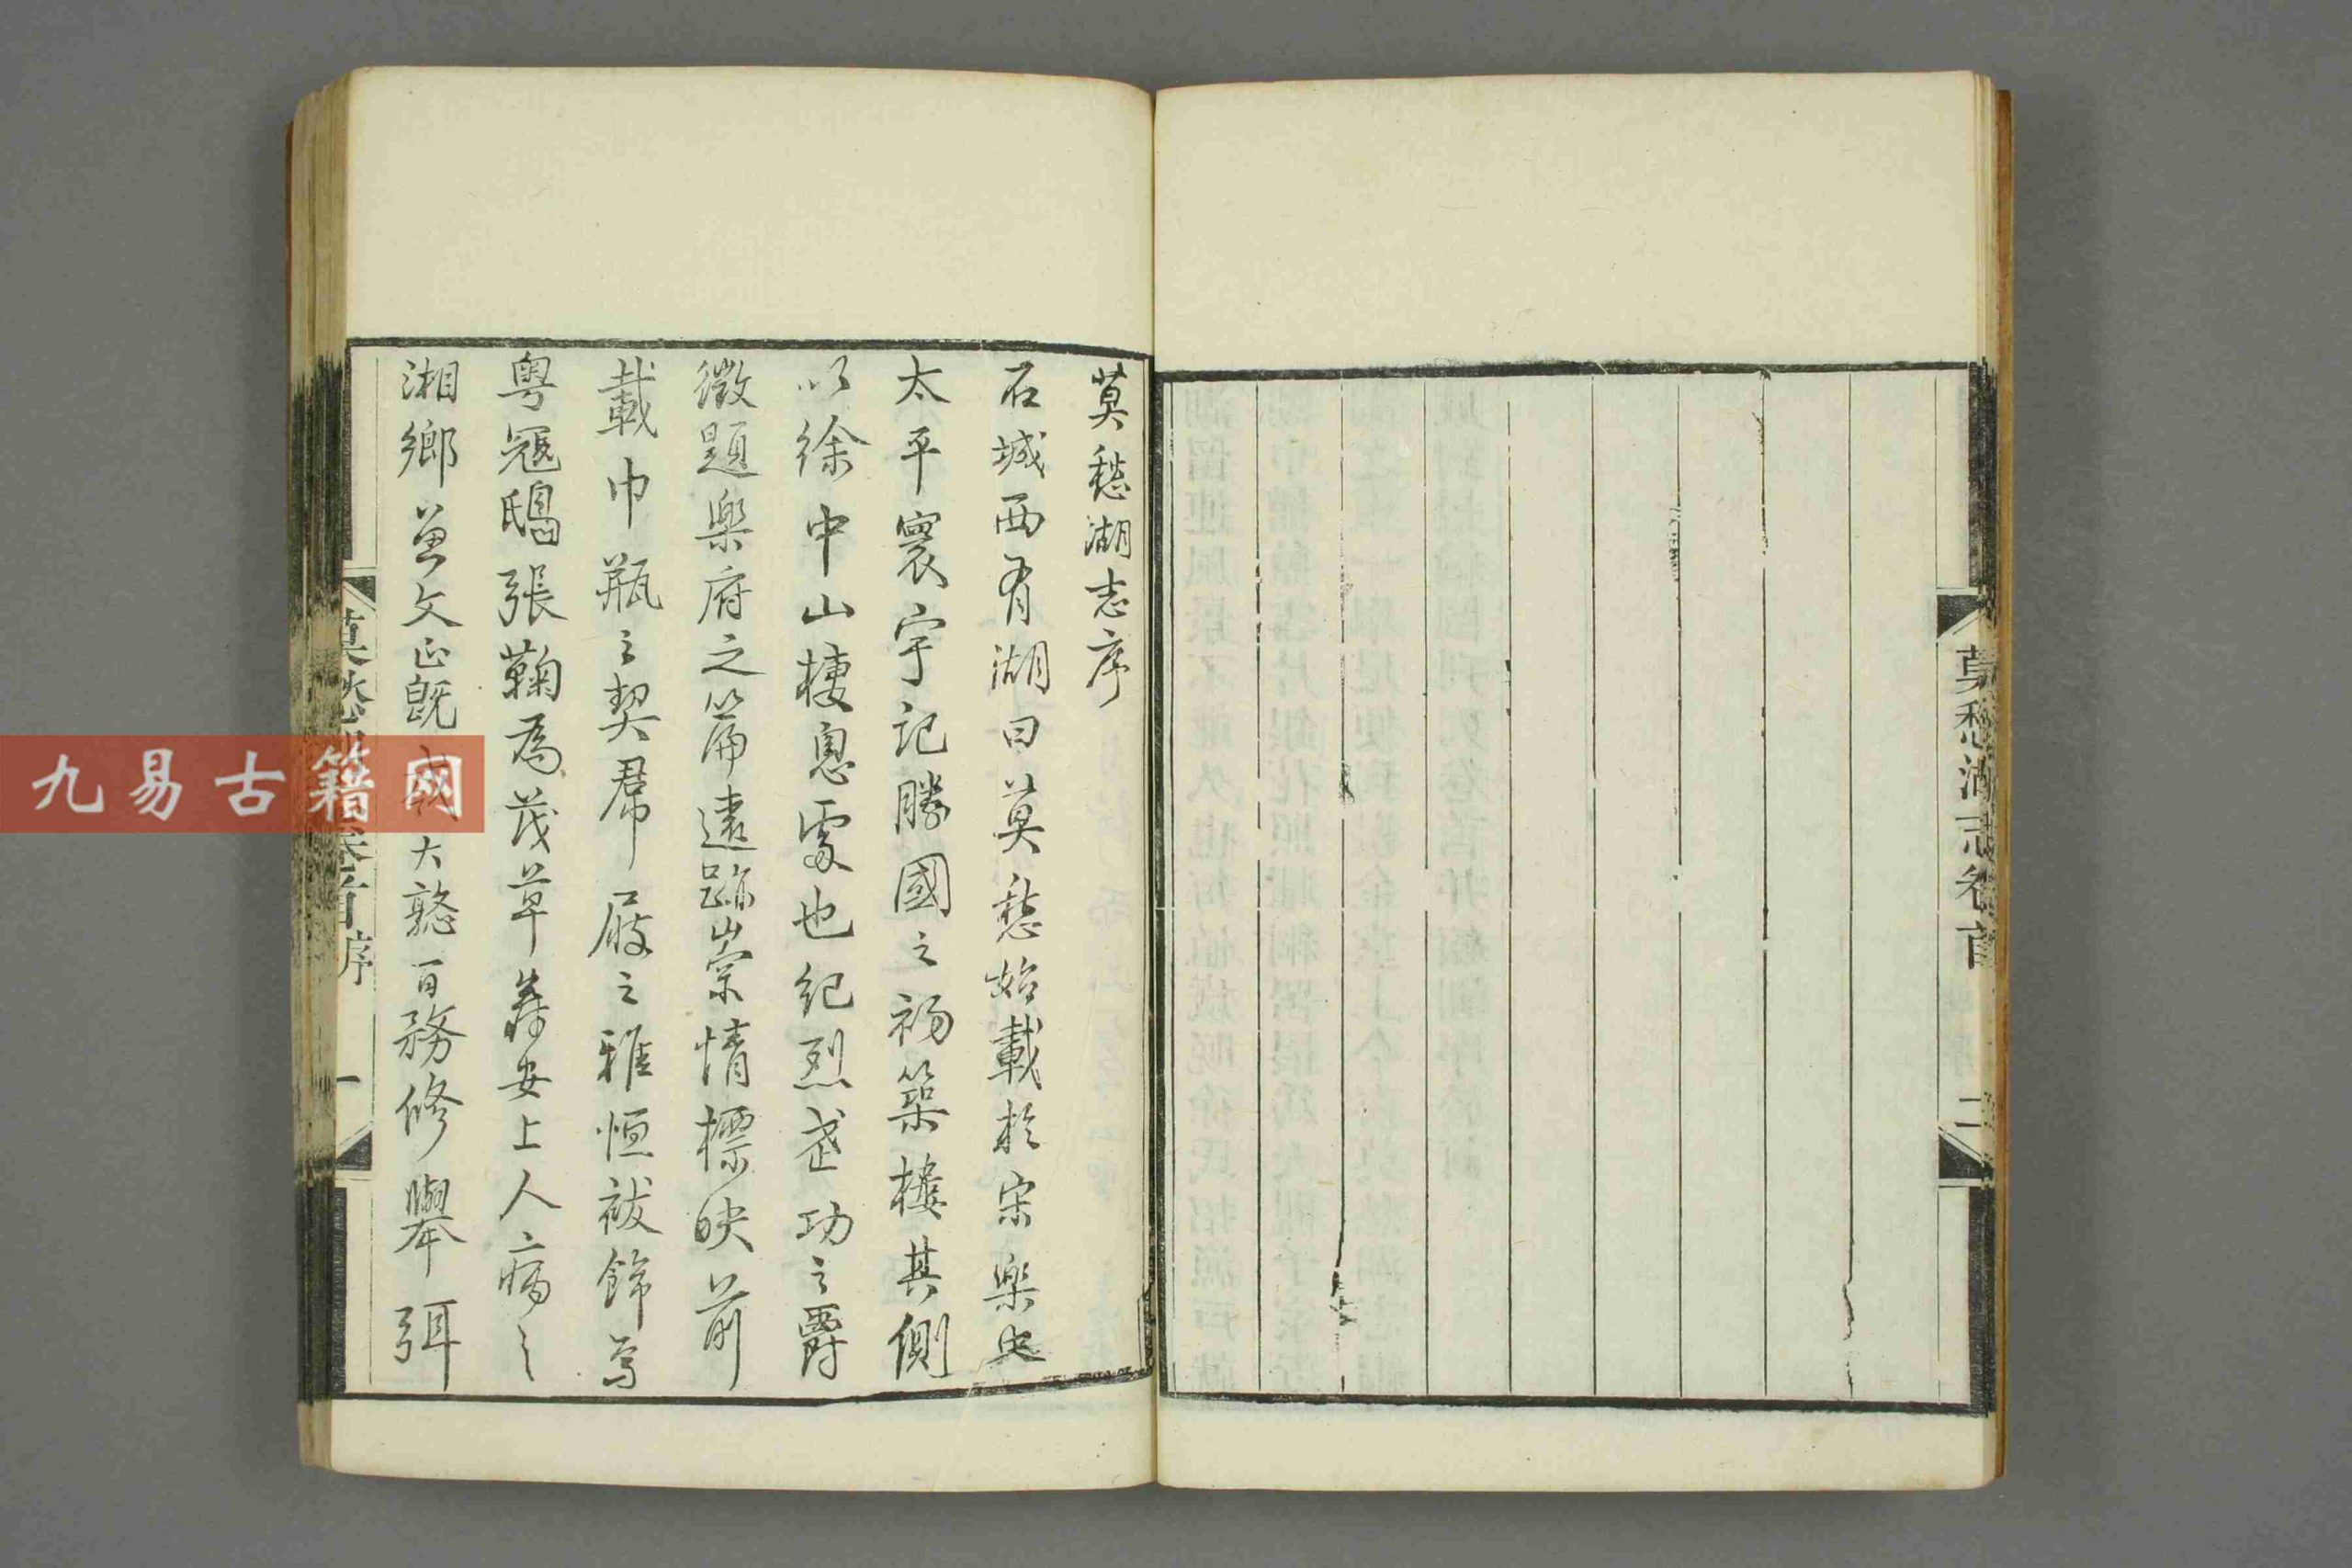 莫愁湖志卷首
二
莫愁湖志序
石城西有湖曰莫愁始載於宋樂史
太平寰宇記勝國之初築樓其側
以徐中山棲息處也紀烈武功之爵
徵題樂府之篇遠跡崇情標映前
載巾瓶之契帬屐之雅恒袚飾焉
粵寇鴟張鞠為茂草寿安上人病之
湘鄉曾文正既戡大憝百務修舉弭
序
一
九易古籍网